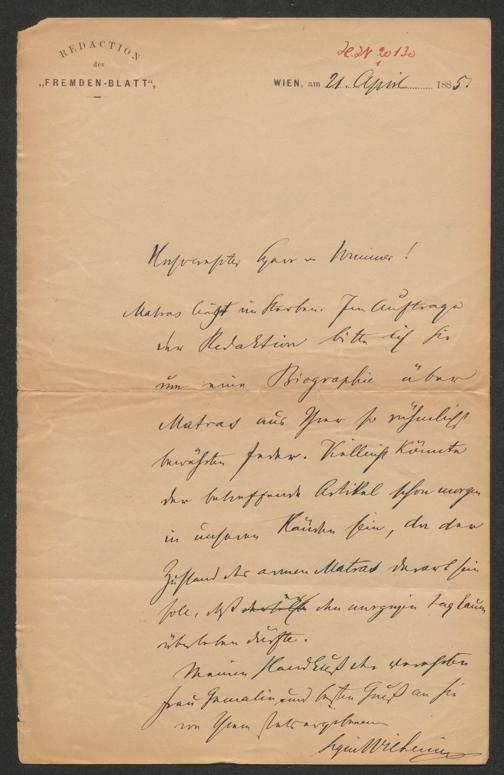 REDACTION
des
„FREMDEN-BLATT“,
H.I.N. 20130
WIEN, am 21. April 1885
Hochverehrter Herr v
Matras liegt im Sterben. Im Auftrage
der Redaktion bitte ich Sie
um eine Biographie über
Matras aus Ihrer so rühmlich
bewährten Feder. Vielleicht könnte
der betreffende Artikel schon morgen
in unseren Händen sein, da der
Zustand des armen Matras derart sein
soll, daß den morgigen Tag kaum
überleben dürfte.
Meinen Handkuß der verehrten
Frau Gemalin und besten Gruß an Sie
von Ihrem stets ergebenen